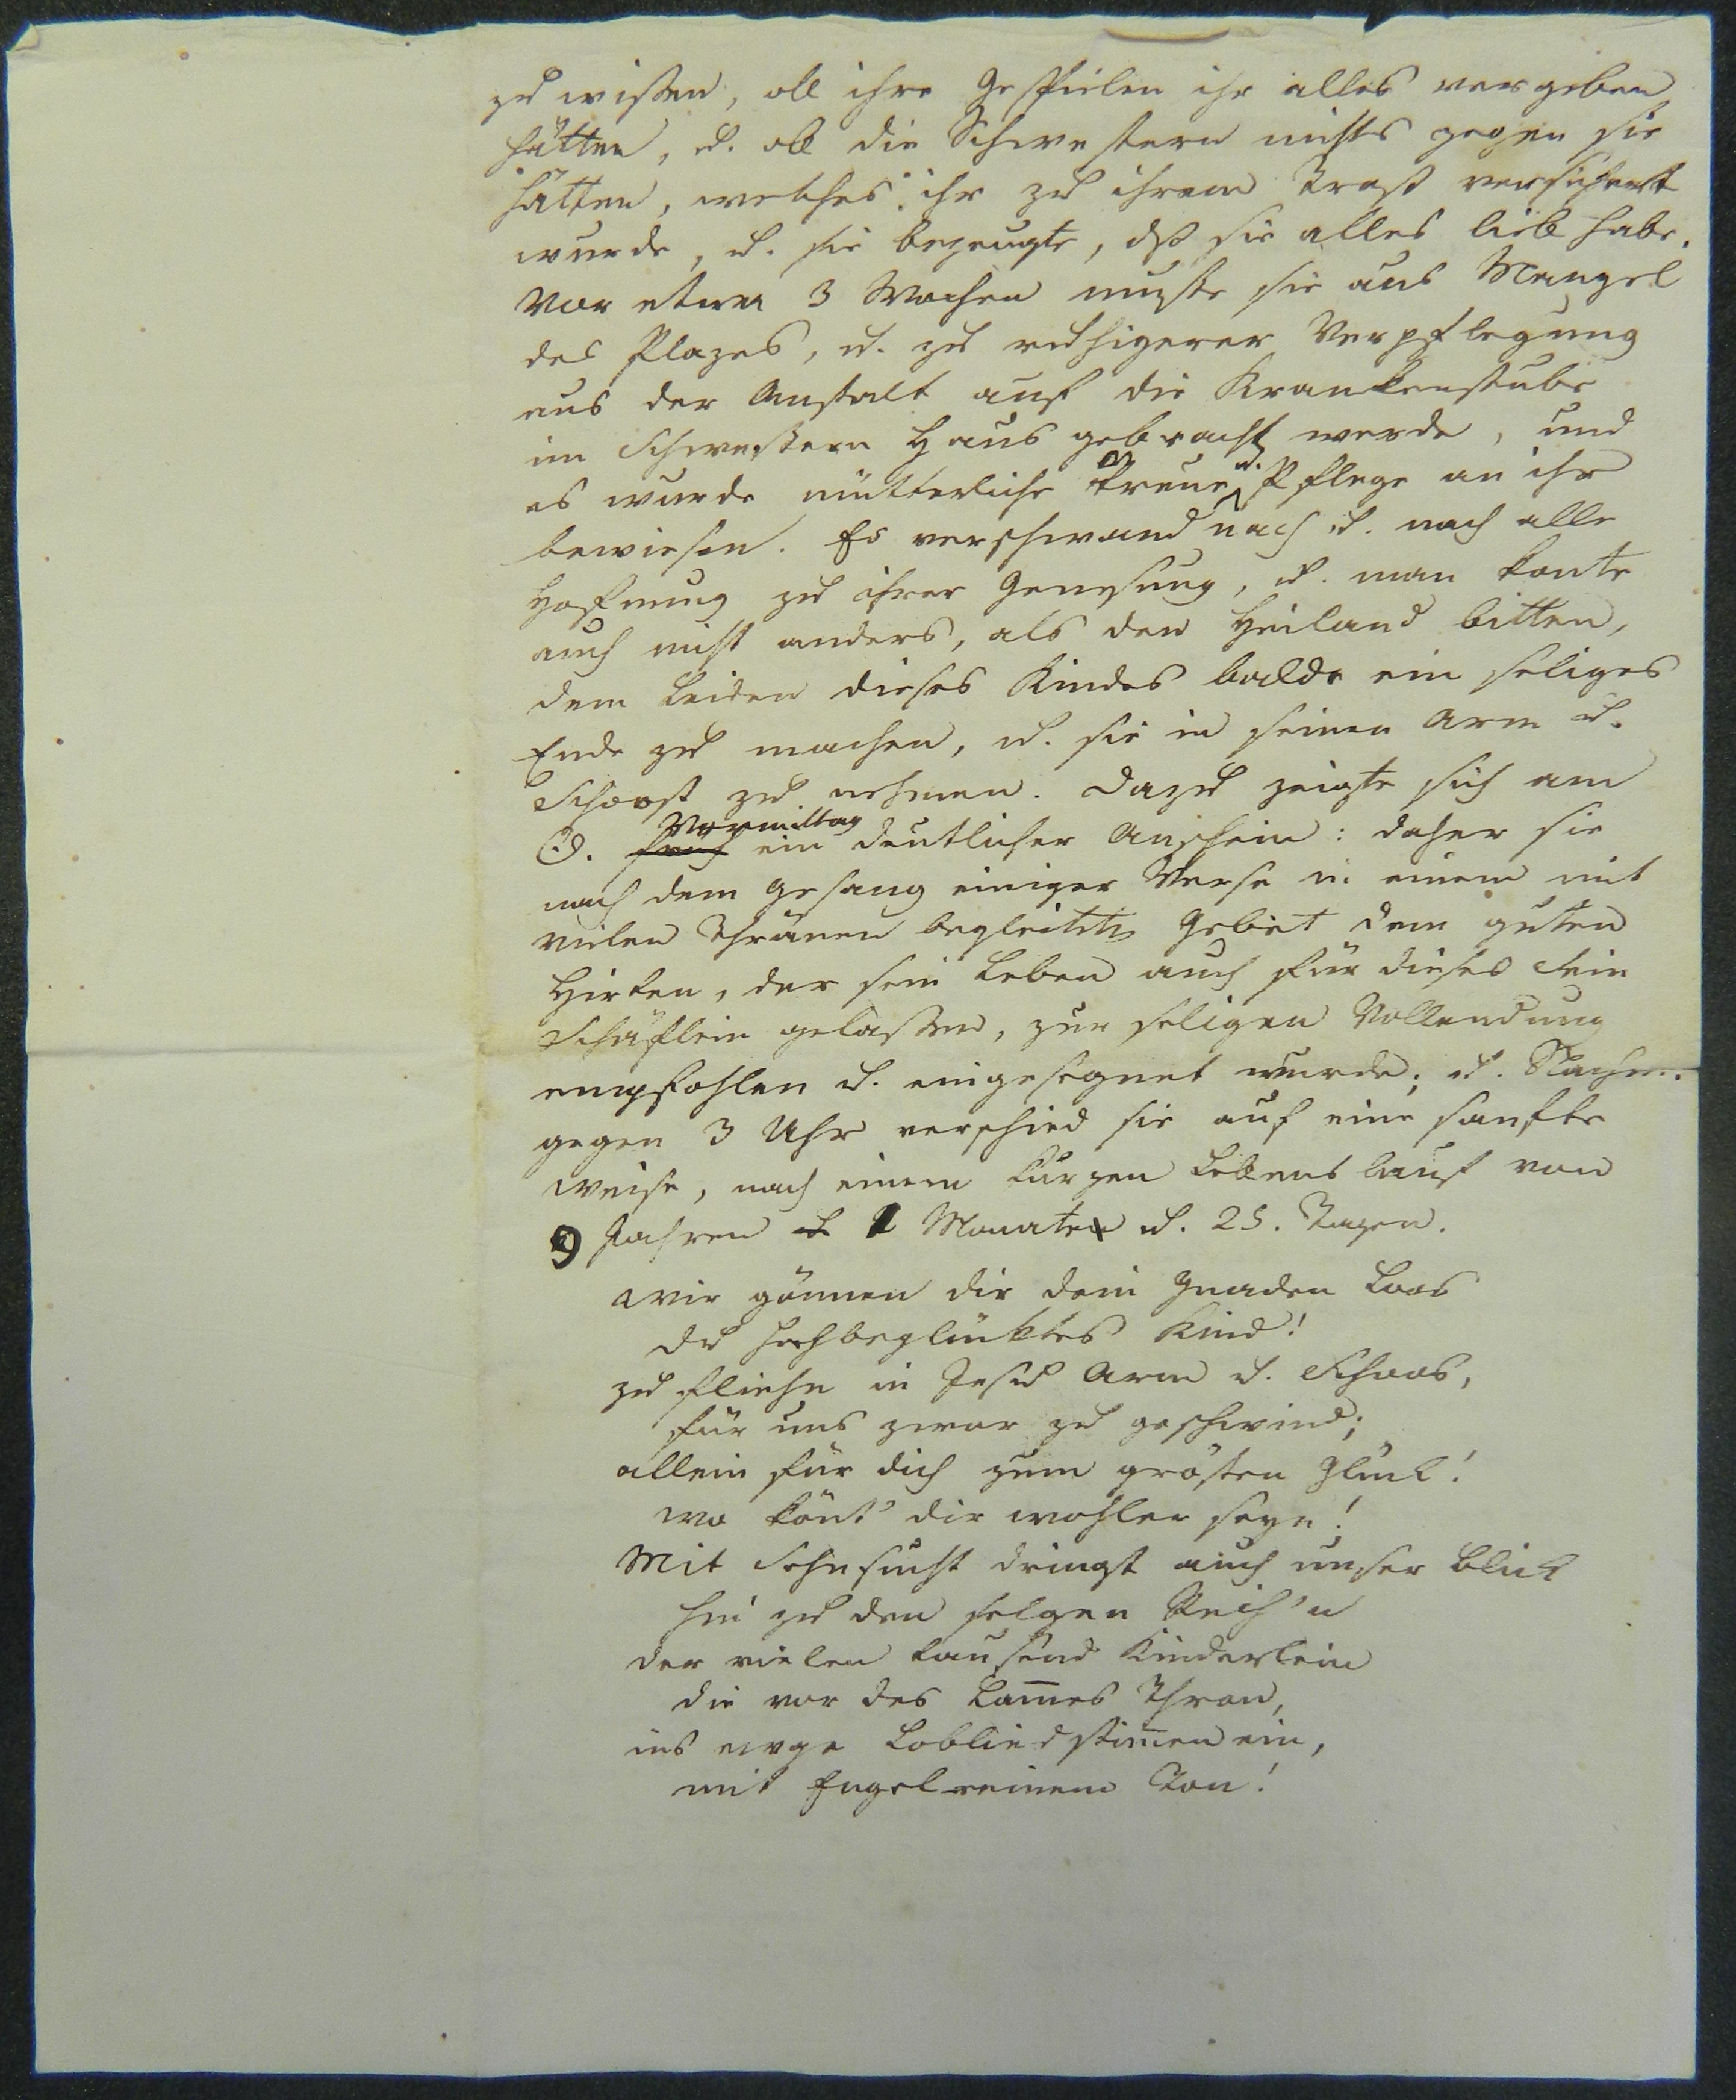 zu wißen, ob ihre Gespielen ihr alles vergeben
hätten, u. ob die Schwestern nichts gegen sie
hätten, welches ihr zu ihrem Trost versichert
wurde, u. sie bezeugte, dß sie alles lieb habe.
Vor etwa 3 Wochen mußte sie aus Mangel
des Plazes, u. zu ruhigerer Verpflegung
aus der Anstalt auf die Krankenstube
im Schwestern Haus gebracht werde, und
es wurde mütterliche Treue u. Pflege an ihr
bewiesen. Es verschwand nach u. nach alle
Hofnung zu ihrer Genesung, u. man konte
auch nicht anders, als den Heiland bitten,
dem Leiden dieses Kindes balde ein seliges
Ende zu machen, u. sie in seinen Arm u.
Schoost zu nehmen. Dazu zeigte sich am
☉. früh Vormittag ein deutlicher Anschein: daher sie
nach dem Gesang einiger Verse in einem mit
vielen Thränen begleitetn Gebet dem guten
Hirten, der sein Leben auch für dieses Sein
Schäflein gelaßen, zur seligen Vollendung
empfohlen u. eingesegnet wurde; u. Nachm.
gegen 3 Uhr verschied sie auf eine sanfte
Weise, nach einem kurzen Lebenslauf von
9 Jahren 1 Monate u. 25. Tagen.
Wir gönnen dir dein Gnaden Loos
du hochbeglüktes Kind!
zu fliehn in Jesu Arm u. Schoos,
für uns zwar zu geschwind;
allein für dich zum grösten Glück!
wo könt' dir wohler seyn!
Mit Sehnsucht dringt auch unser Blick
hin zu den selgen Reih'n
der vielen tausend Kinderlein
die vor des Lam̄es Thron,
ins ewge Loblied stim̄en ein,
mit Engelreinem Ton!